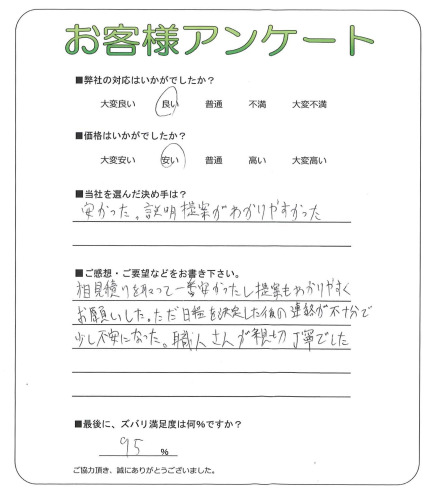 お客様アンケート
■弊社の対応はいかがでしたか?
大変良い 良い 普通 不満 大変不満
■価格はいかがでしたか?
大変安い 安い 普通 高い 大変高い
■当社を選んだ決め手は?
安かった。説明提案がわかりやすかった
■ご感想・ご要望などをお書き下さい。
相見積りを取って一番安かったし提案もわかりやすく
お願いした。ただ日程を決定した後の連絡が不十分で
少し不安になった。職人さんが親切丁寧でした
■最後に、ズバリ満足度は何%ですか?
95 %
ご協力頂き、誠にありがとうございました。